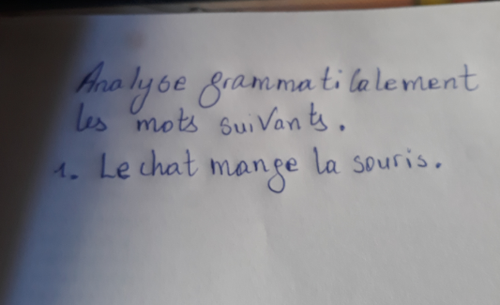 Analyse grammaticalement
les mots suivants.
1. Le chat mange la souris.